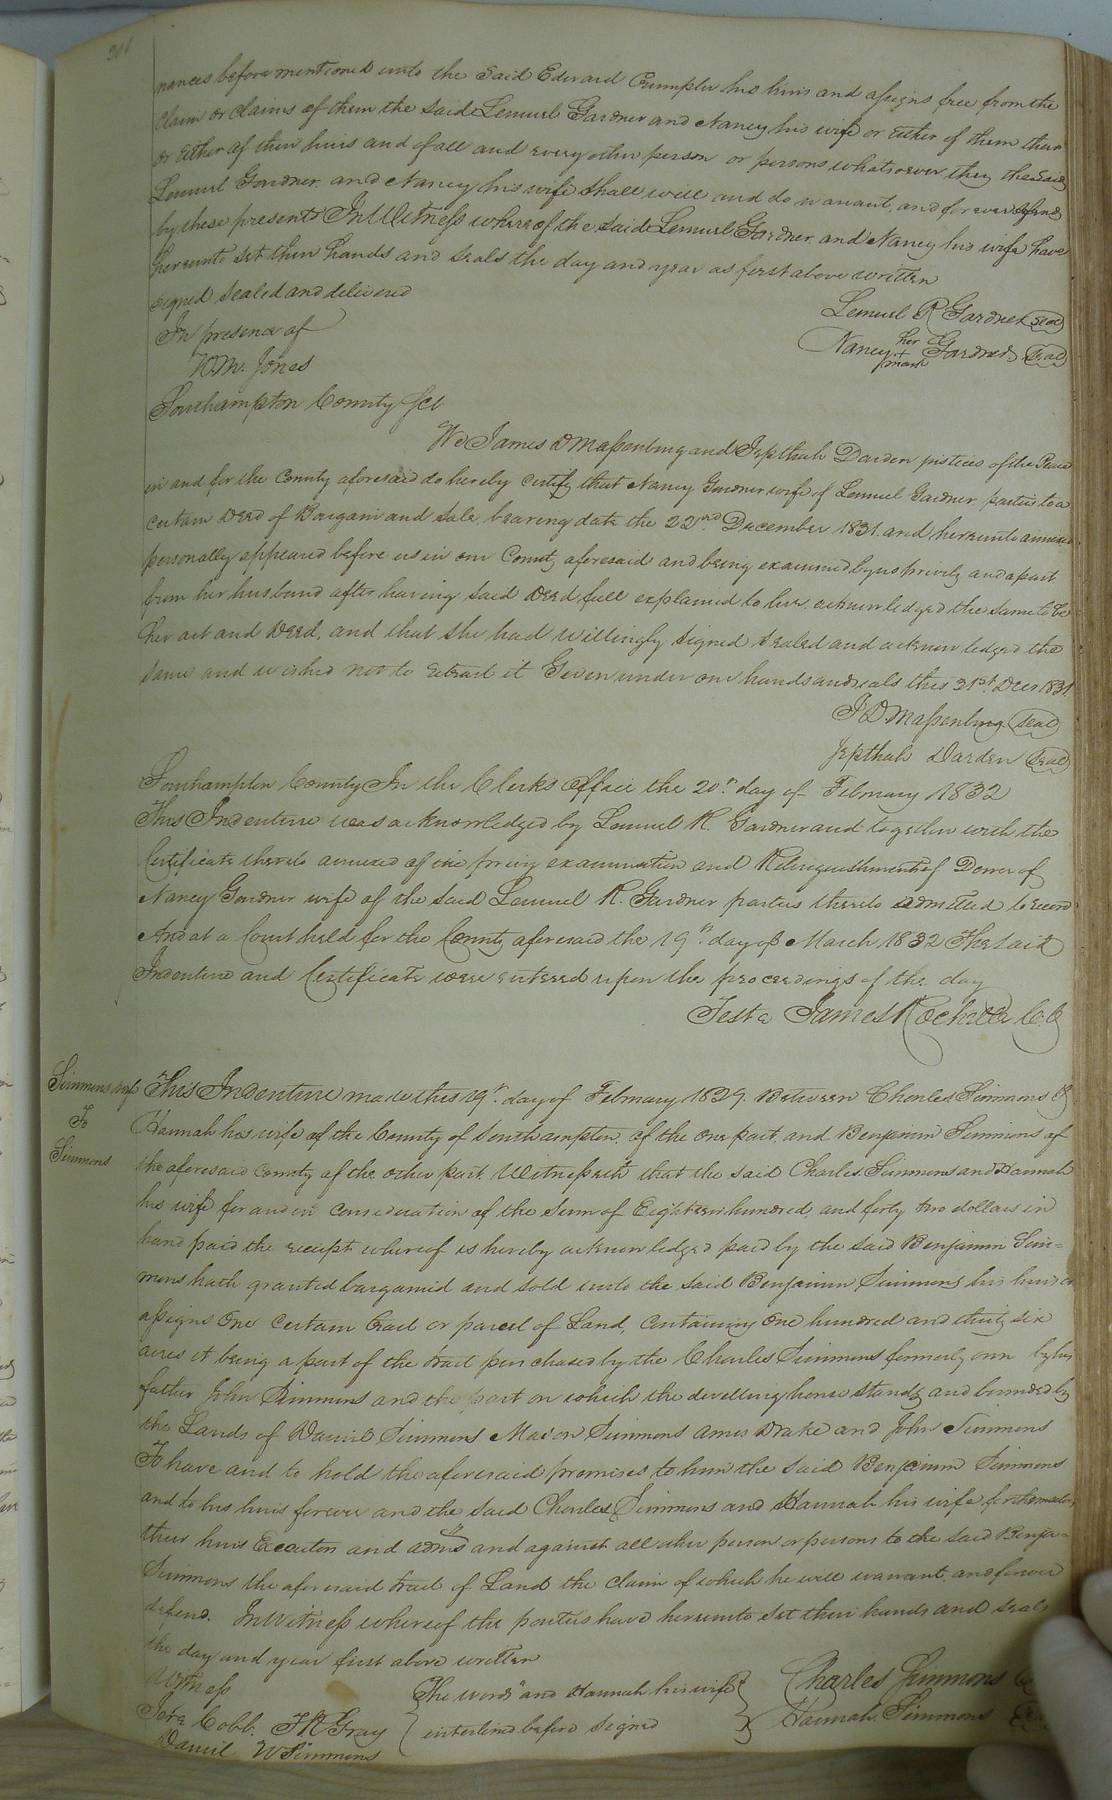 nances before mentioned unto the Said Edward Crumpler his heirs and assigns free from the
claim or claims of them the Said Lemuel Gardner and Nancy his wife or Either of them their
or Either of their heirs and of all and every other person or persons whatsoever they the Said
Lemuel Gardner and Nancy his wife Shall will and do warrant and forever defend
by these presents In Witness whereof the Said Lemuel Gardner and Nancy his wife have
hereunto set their hands and seals the day and year as first above written
signed sealed and delivered
In presence of
Wm. Jones
Lemuel R Gardner Seal
Nancy her + mark Gardner Seal
Southampton County Sct
We James D Massenburg and Jepthah Darden justices of the Peace
in and for the County aforesaid do hereby certify that Nancy Gardner wife of Lemuel Gardner parties to a
certain Deed of Bargain and Sale bearing date the 22nd December 1831 and hereunto annexed
personally appeared before us in our County aforesaid and being examined by us privily and apart
from her husband after having said Deed full explained to her acknowledged the same to be
her act and Deed, and that she had willingly signed sealed and acknowledged the
same and wished not to retract it Given under our hands and seals this 31st Decr 1831
J D Massenburg Seal
Jepthah Darden Seal
Southampton County In the Clerks Office the 20th day of February 1832
This Indenture was acknowledged by Lemuel R. Gardner and together with the
Certificate thereto annexed of the privy examination and Relinquishment of Dower of
Nancy Gardner wife of the Said Lemuel R. Gardner parties thereto admitted to record
And at a Court held for the County aforesaid the 19th day of March 1832 The Said
Indenture and Certificate were entered upon the proceedings of the day
Teste James Rochelle C.C
Simmons & wife
To
Simmons
This Indenture made this 19th day of February 1829. Between Charles Simmons &
Hannah his wife of the County of Southampton of the one part, and Benjamin Simmons of
the aforesaid County of the other part. Witnesseth that the said Charles Simmons and Hannah
his wife for and in consideration of the Sum of Eighteen hundred and forty two dollars in
hand paid the receipt whereof is hereby acknowledged paid by the Said Benjamin Sim=
mons hath granted bargained and sold unto the Said Benjamin Simmons his heirs or
assigns One certain tract or parcel of Land, containing One hundred and thirty six
acres it being a part of the tract purchased by the Charles Simmons formerly own by his
father John Simmons and the part on which the dwelling house stands and bounded by
the Lands of Daniel Simmons Mason Simmons Amos Drake and John Simmons
To have and to hold the aforesaid premises to him the Said Benjamin Simmons
and to his heirs forever and the Said Charles Simmons and Hannah his wife for themselves
their heirs Executors and admrs and against all other person or persons to the Said Benja=
Simmons the aforesaid tract of Land the claim of which he will warrant and forever
defend. In Witness whereof the parties have hereunto set their hands and seals
the day and year first above written
Witness
The words "and Hannah his wife"
interlined before signed
Charles Simmons
Hannah Simmons
Cobb. J R Gray
Daniel W Simmons